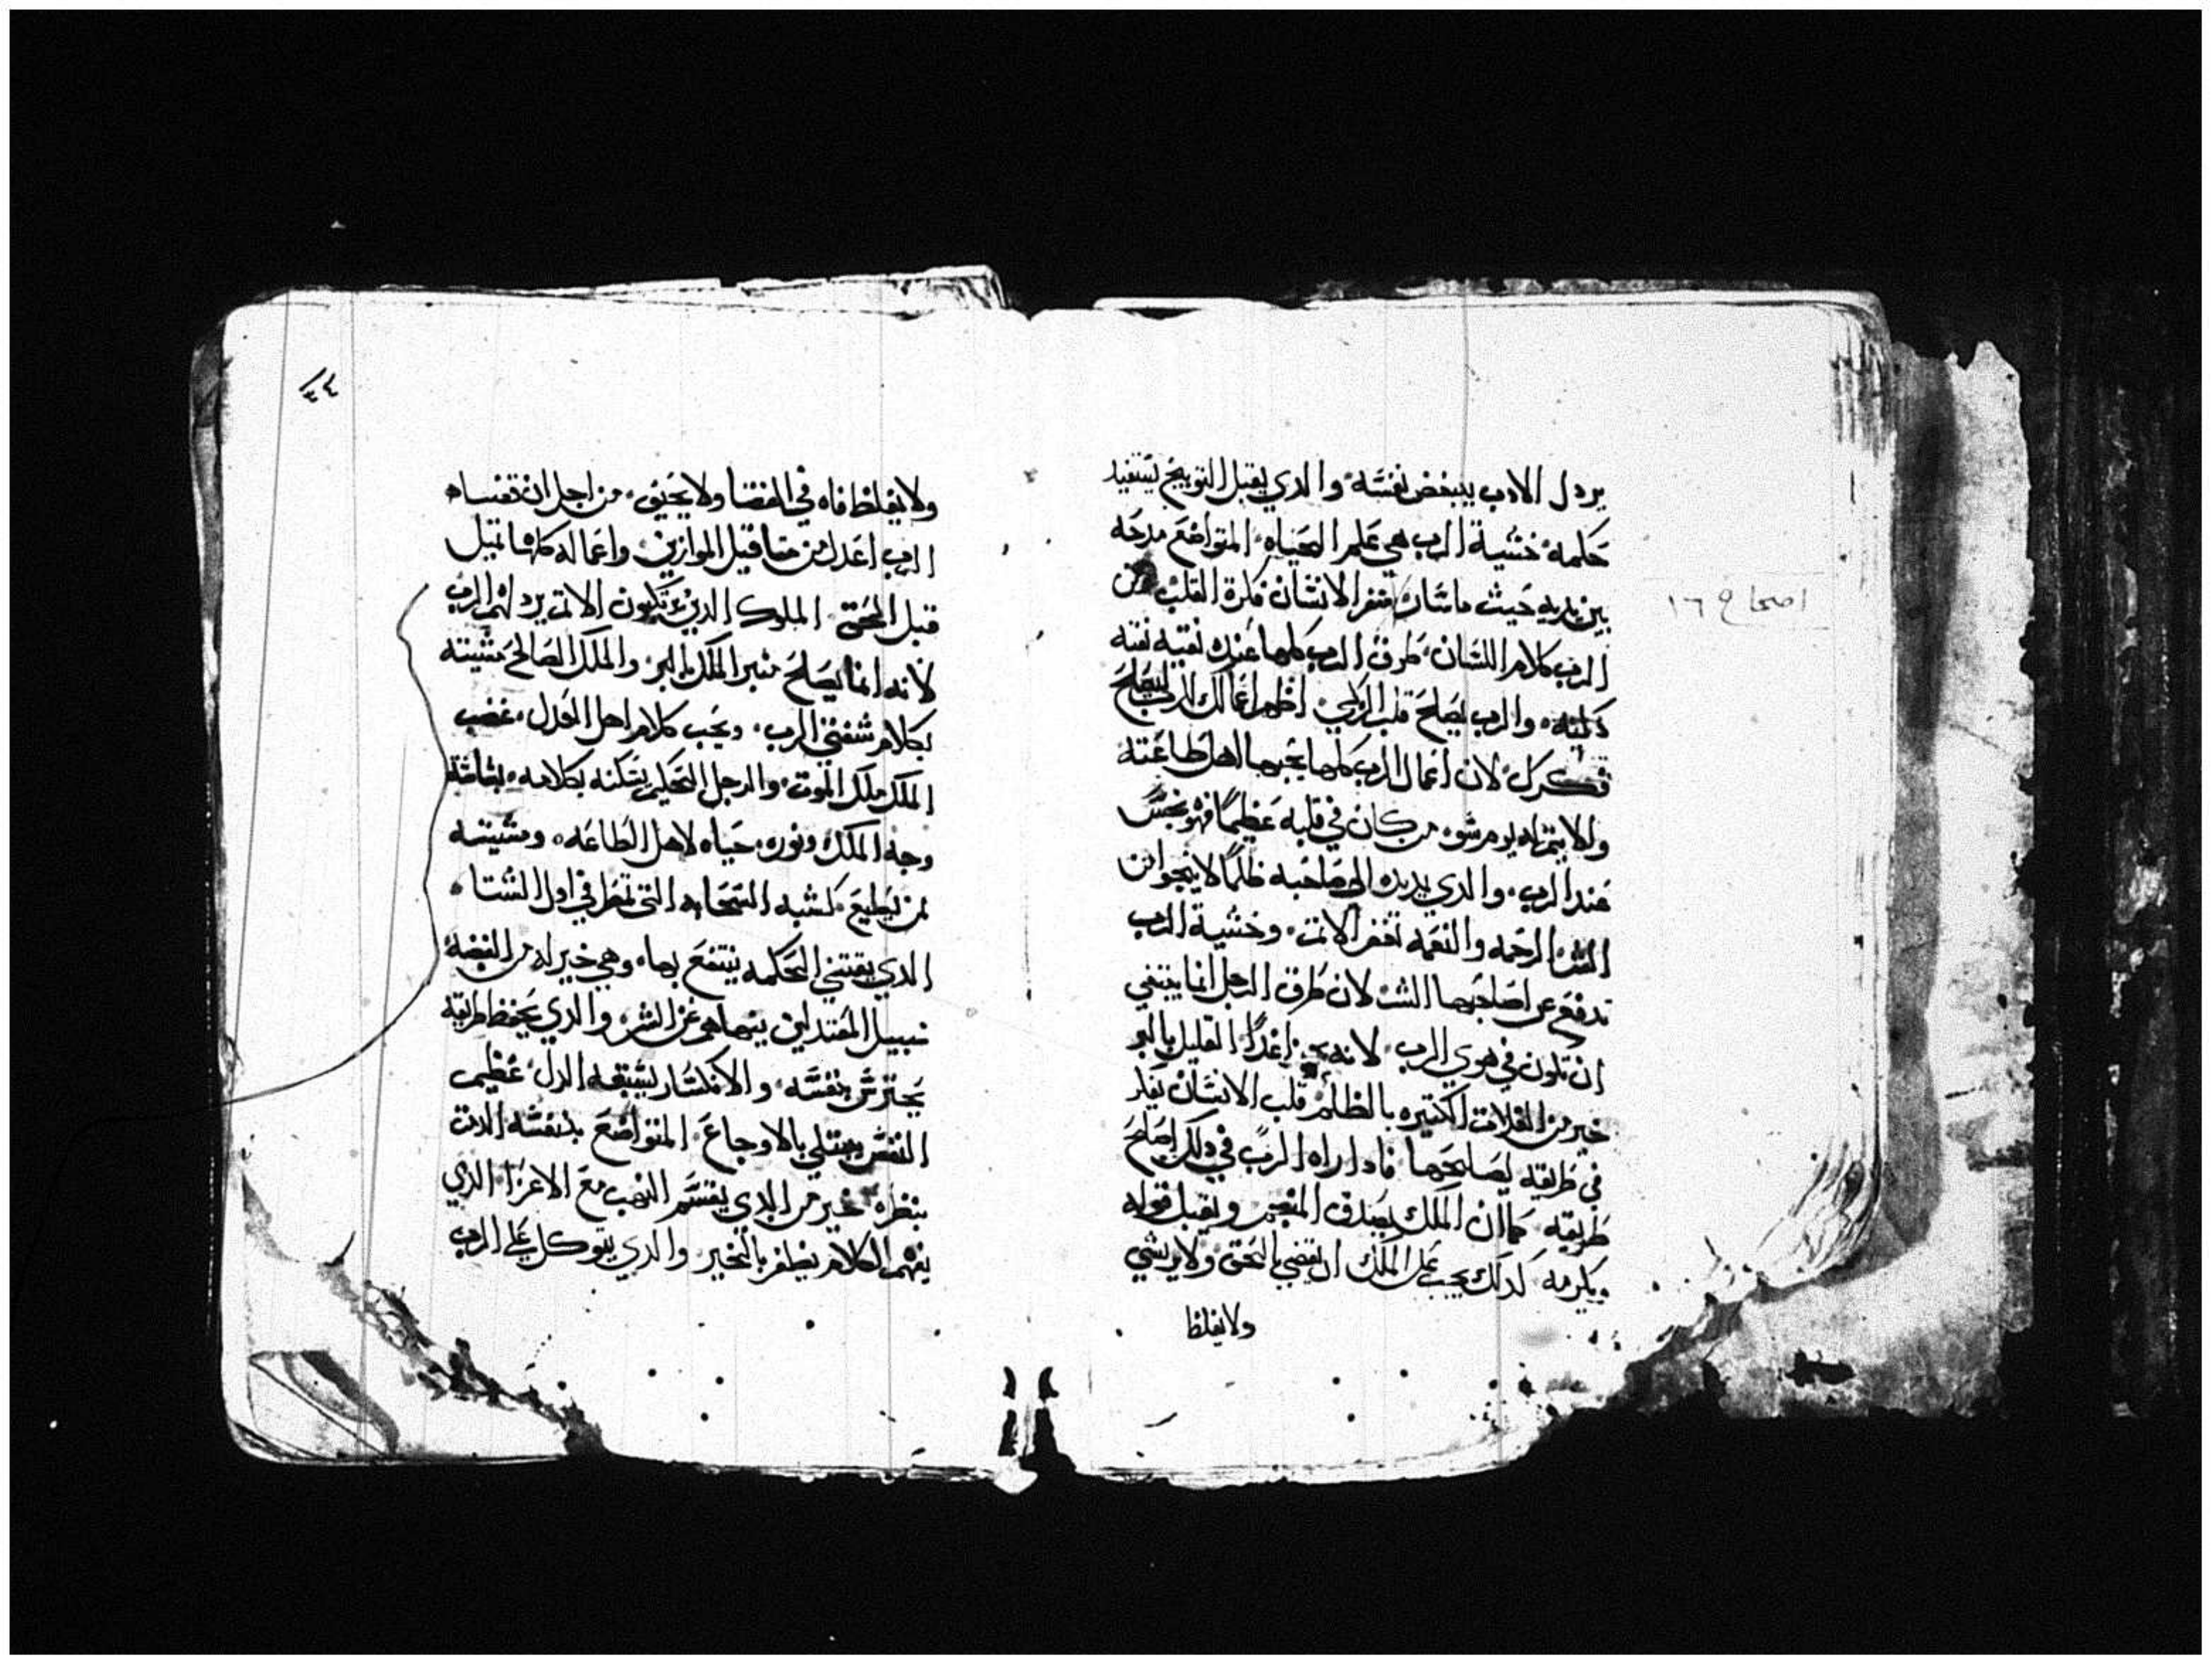 يردل الادب يبغض نفسه والدي يقبل التوبيخ يستفيد
حكمه خشية الرب هي علم الحياه المتواضع مدحه
بين يديه حيث ماسار فكرة القلب من
الرب كلام اللسان طرق الرب كلها عنده نقيه
والرب يصلح قلب اظهر اعمالك للرب ليصلح
فكرك لان اعمال الرب كلها لاهل طاعته
والاثمه ليوم سوء من كان في قلبه عظيما فهو نجس
عند الرب والدي يديده الي صاحبه ظلما لا ينجوا من
الشر الرحمه والنعمه تغفر الاتم وخشية الرب
تدفع عن اصاحبها الشر لان طرق الرجل انما ينبغي
ان تكون في هوي الرب لانه القليل بالبر
خير من الغلات الكتيره بالظلم قلب الانسان يفكر
في طريقه ليصالحها فادا راه الرب في دلك اصلح
طريقه كما ان الملك يصدق المنجم ويقبل قوله
ويكرمه كدلك يجب علي الملك ان يقضي بالحق ولا يرتشي
ولا يغلظ
اصحاح ١٦
٣٤
ولا يغلظ فاه في القضا ولا يحيف من اجل ان
الرب اعدل من متاقيل الموازين واعماله كلها تميل
قبل الحق الملوك الدين يرتكبون الاتم يردلهم الرب
لانه انما يصلح منبر الملك بالبر والملك الصالح مشيته
بكلام شفتي الرب ويحب كلام اهل العدل غضب
الملك ملك الموت والرجل الحكيم يسكنه بكلامه بشاشة
وجه الملك ونوره حياه لاهل الطاعه ومشيته
لمن يطيع كشبه السحابه التي تمطر في اول الشتاء
الدي يقتني الحكمه ينتفع بها وهي خير له من الفضه
سبيل المعتدلين ينهاهم عن الشر والدي يحفظ طريقه
يحترس بنفسه والانكسار يسبقه الدل عظيم
النفس يمتلي بالاوجاع المتواضع بنفسه الدت
بنظره خير من الدي يقتسم النهب مع الاعزا الدي
يفهم الكلام يظفر بالخير والدي يتوكل علي الرب